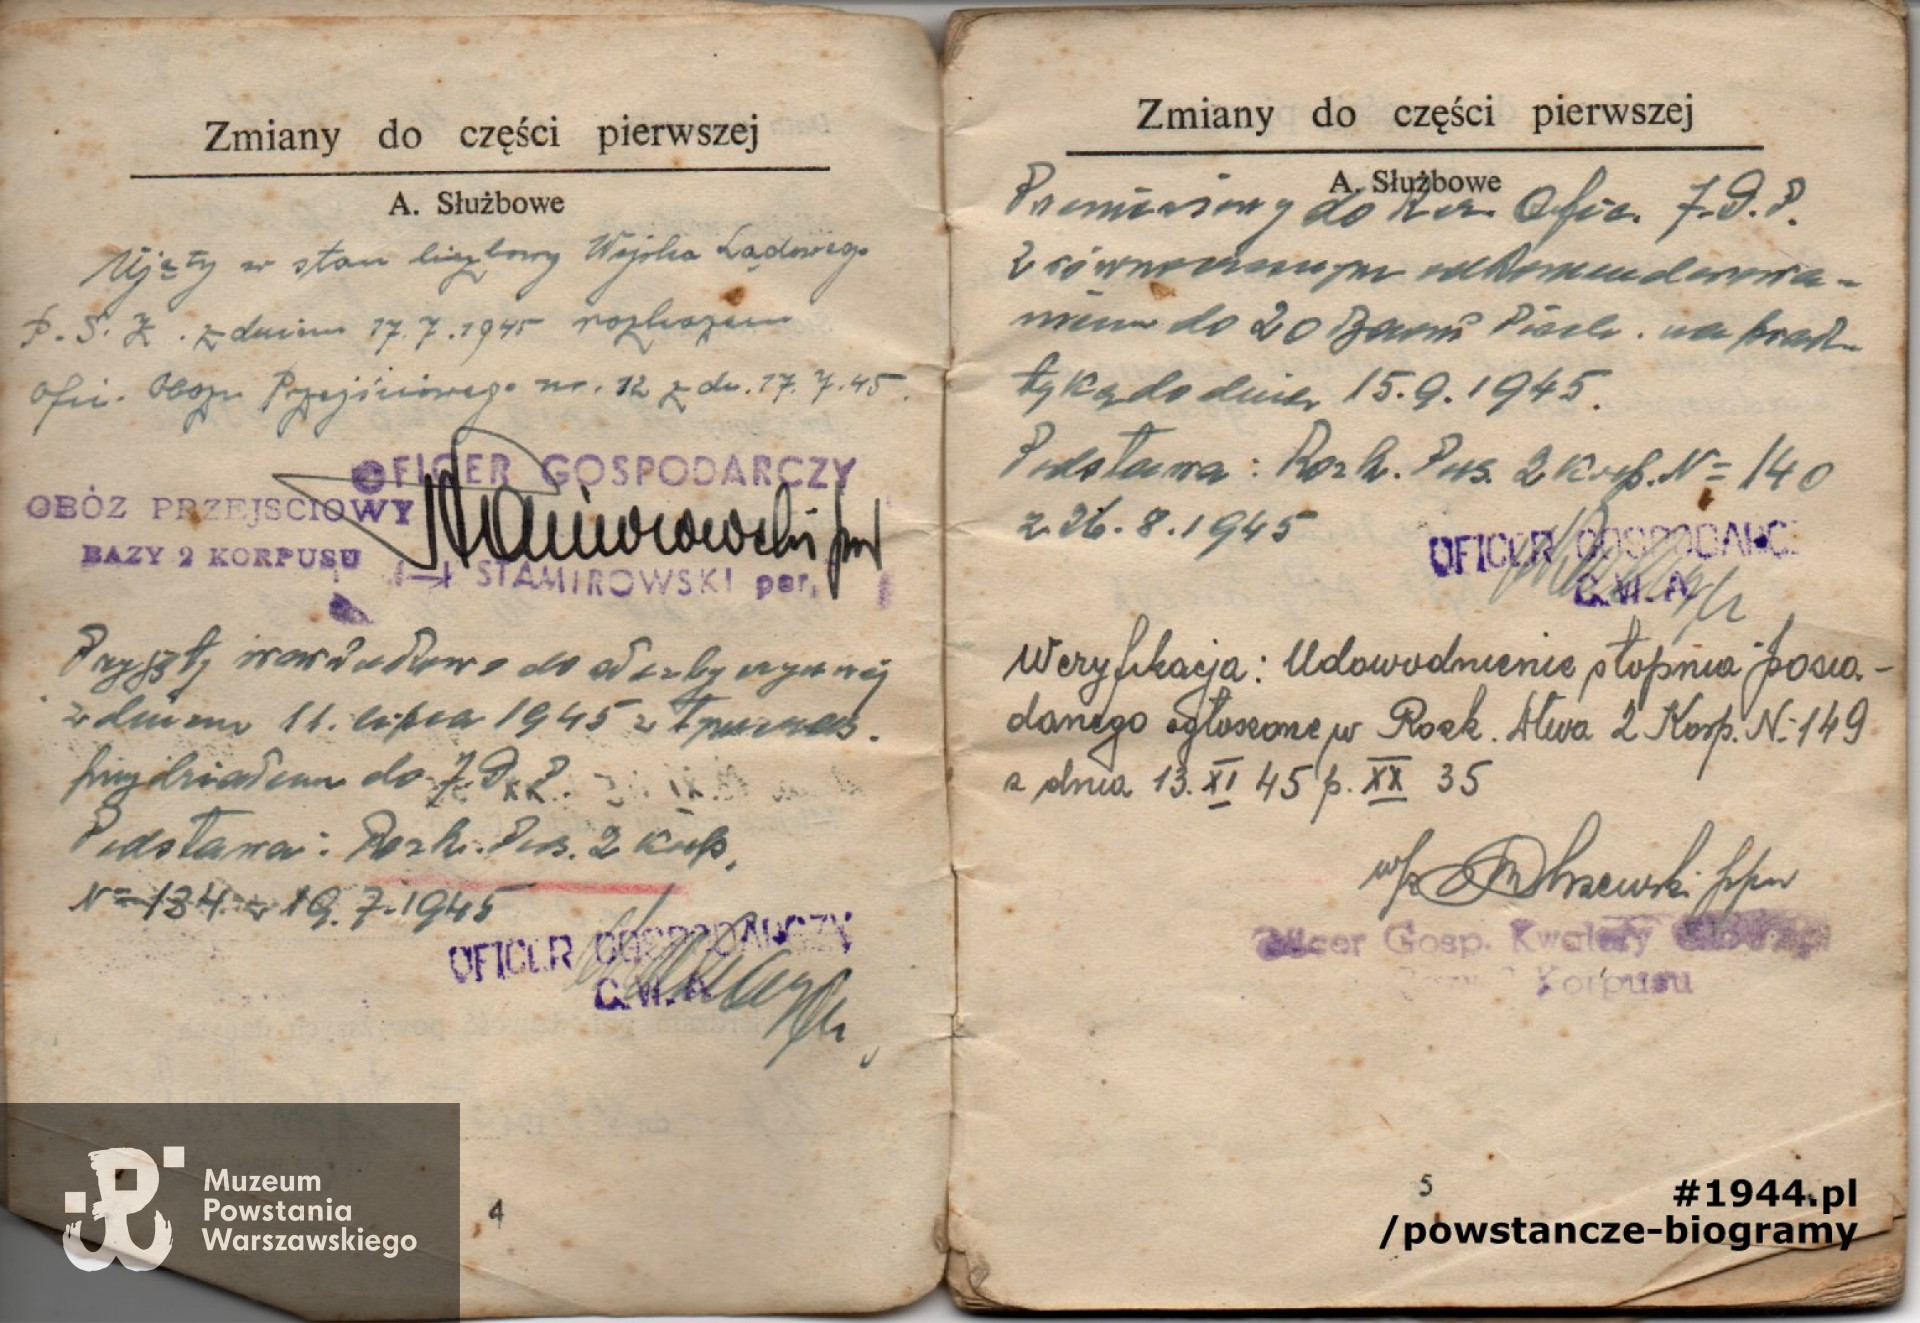 Zmiany do części pierwszej
A. Służbowe
Ujęty w stan liczbowy Wojska Lądowego
P. S. Z. z dniem 17.7.1945 rozkazem
Ofic. Obozu Przejściowego nr. 12 z dn. 17.7.45.
OFICER GOSPODARCZY
OBÓZ PRZEJSCIOWY
BAZY 2 KORPUSU
STAMIROWSKI por.
Przyjęty do służby czynnej
z dniem 11. lipca 1945 z
przydziałem do 7.D.P.
Podstawa: Rozk. Pers. 2 Korp.
N= 134 z 19.7.1945
OFICER GOSPODARCZY
4
Zmiany do części pierwszej
A. Służbowe
Przeniesiony do Rez. Ofic. 7.D.P.
z równoczesnym odkomenderowa-
niem do 20 Piech. na prak-
tykę do dnia 15.9.1945.
Podstawa: Rozk. Pers. 2 Korp. N= 140
z 26.8.1945
OFICER GOSPODARCZ
Weryfikacja: Udowodnienie stopnia posia-
danego ogłoszone w Rozk. Dtwa 2 Korp. N-149
z dnia 13. XI 45 p. XX 35
Oficer Gosp. Kwatery
Korpusu
5
Muzeum
Powstania
Warszawskiego
#1944.pl
/powstancze-biogramy